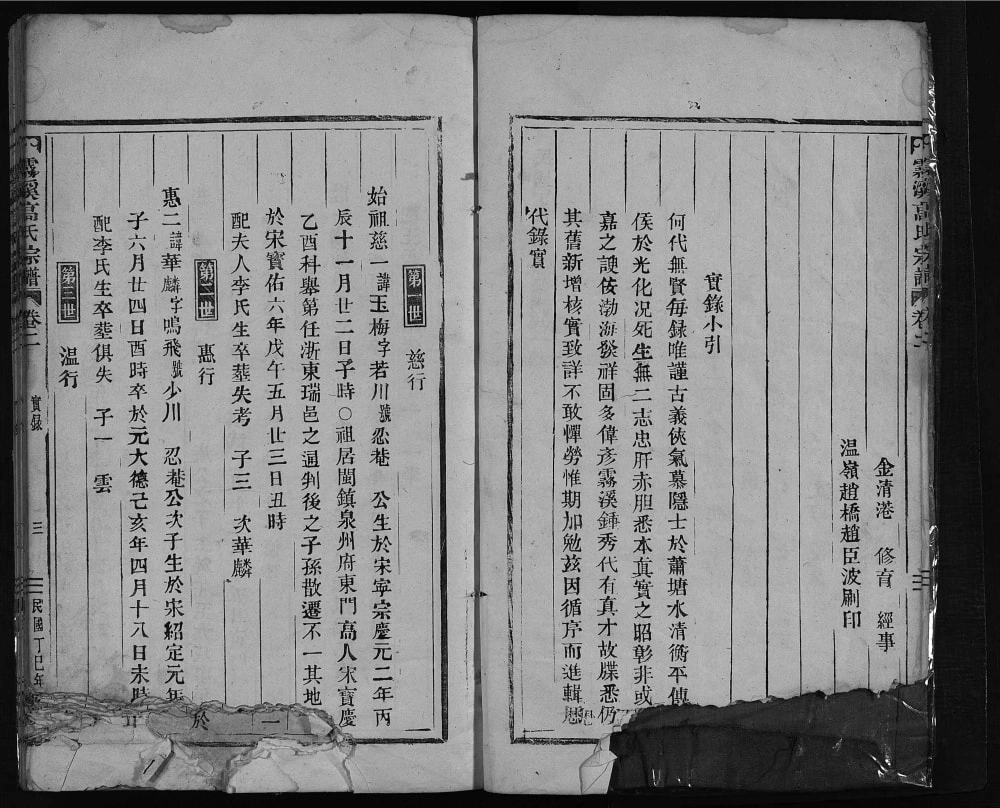 霧溪高氏宗譜 卷二
金清港 修育 經事
温嶺趙橋趙臣波刷印
實錄小引
何代無賢每録唯謹古義俠氣慕隱士於蕭塘水清衡平傳
侯於光化况死生無二志忠肝赤胆悉本真實之昭彰非或
嘉之諛佞渤海發祥固多偉彦霧溪鍾秀代有真才故牒悉仍
其舊新增核實致詳不敢憚勞惟期加勉兹因循序而進輯
代錄實
第一世 慈行
始祖慈一諱玉梅字若川號忍菴 公生於宋寧宗慶元二年丙
辰十一月廿二日子時○祖居閩鎮泉州府東門高人宋寶慶
乙酉科舉第任浙東瑞邑之通判後之子孫散遷不一其地
於宋寶佑六年戊午五月廿三日丑時
配夫人李氏生卒塟失考 子三 次華麟
第二世 惠行
惠二諱華麟字鳴飛號少川 忍菴公次子生於宋紹定元年
子六月廿四日酉時卒於元大德己亥年四月十八日未時
配李氏生卒塟俱失 子一 雲
第三世 温行
霧溪高氏宗譜 卷二 實錄 三 民國丁巳年
一
於